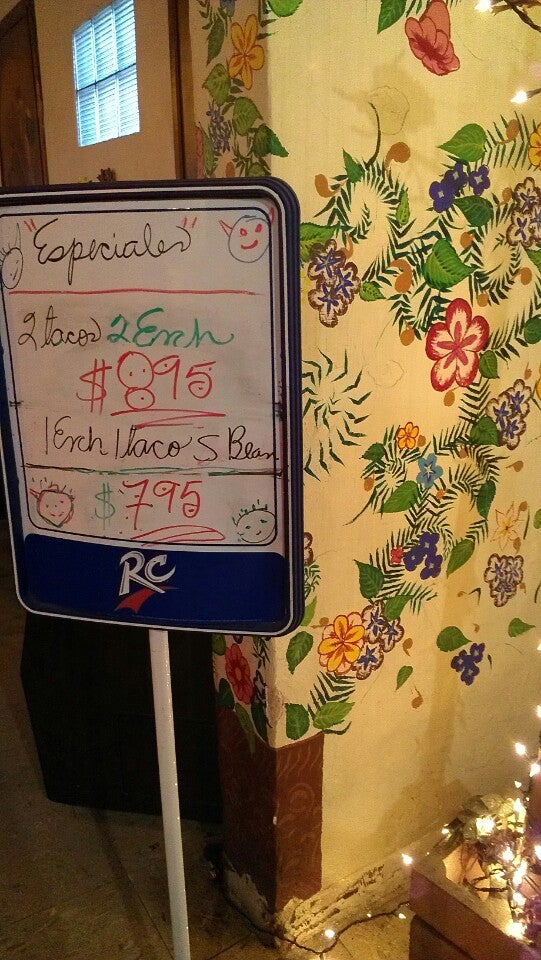 "Especiales"
2 tacos 2 Ench
$895
1 Ench 1 taco S Bean
$795
RC